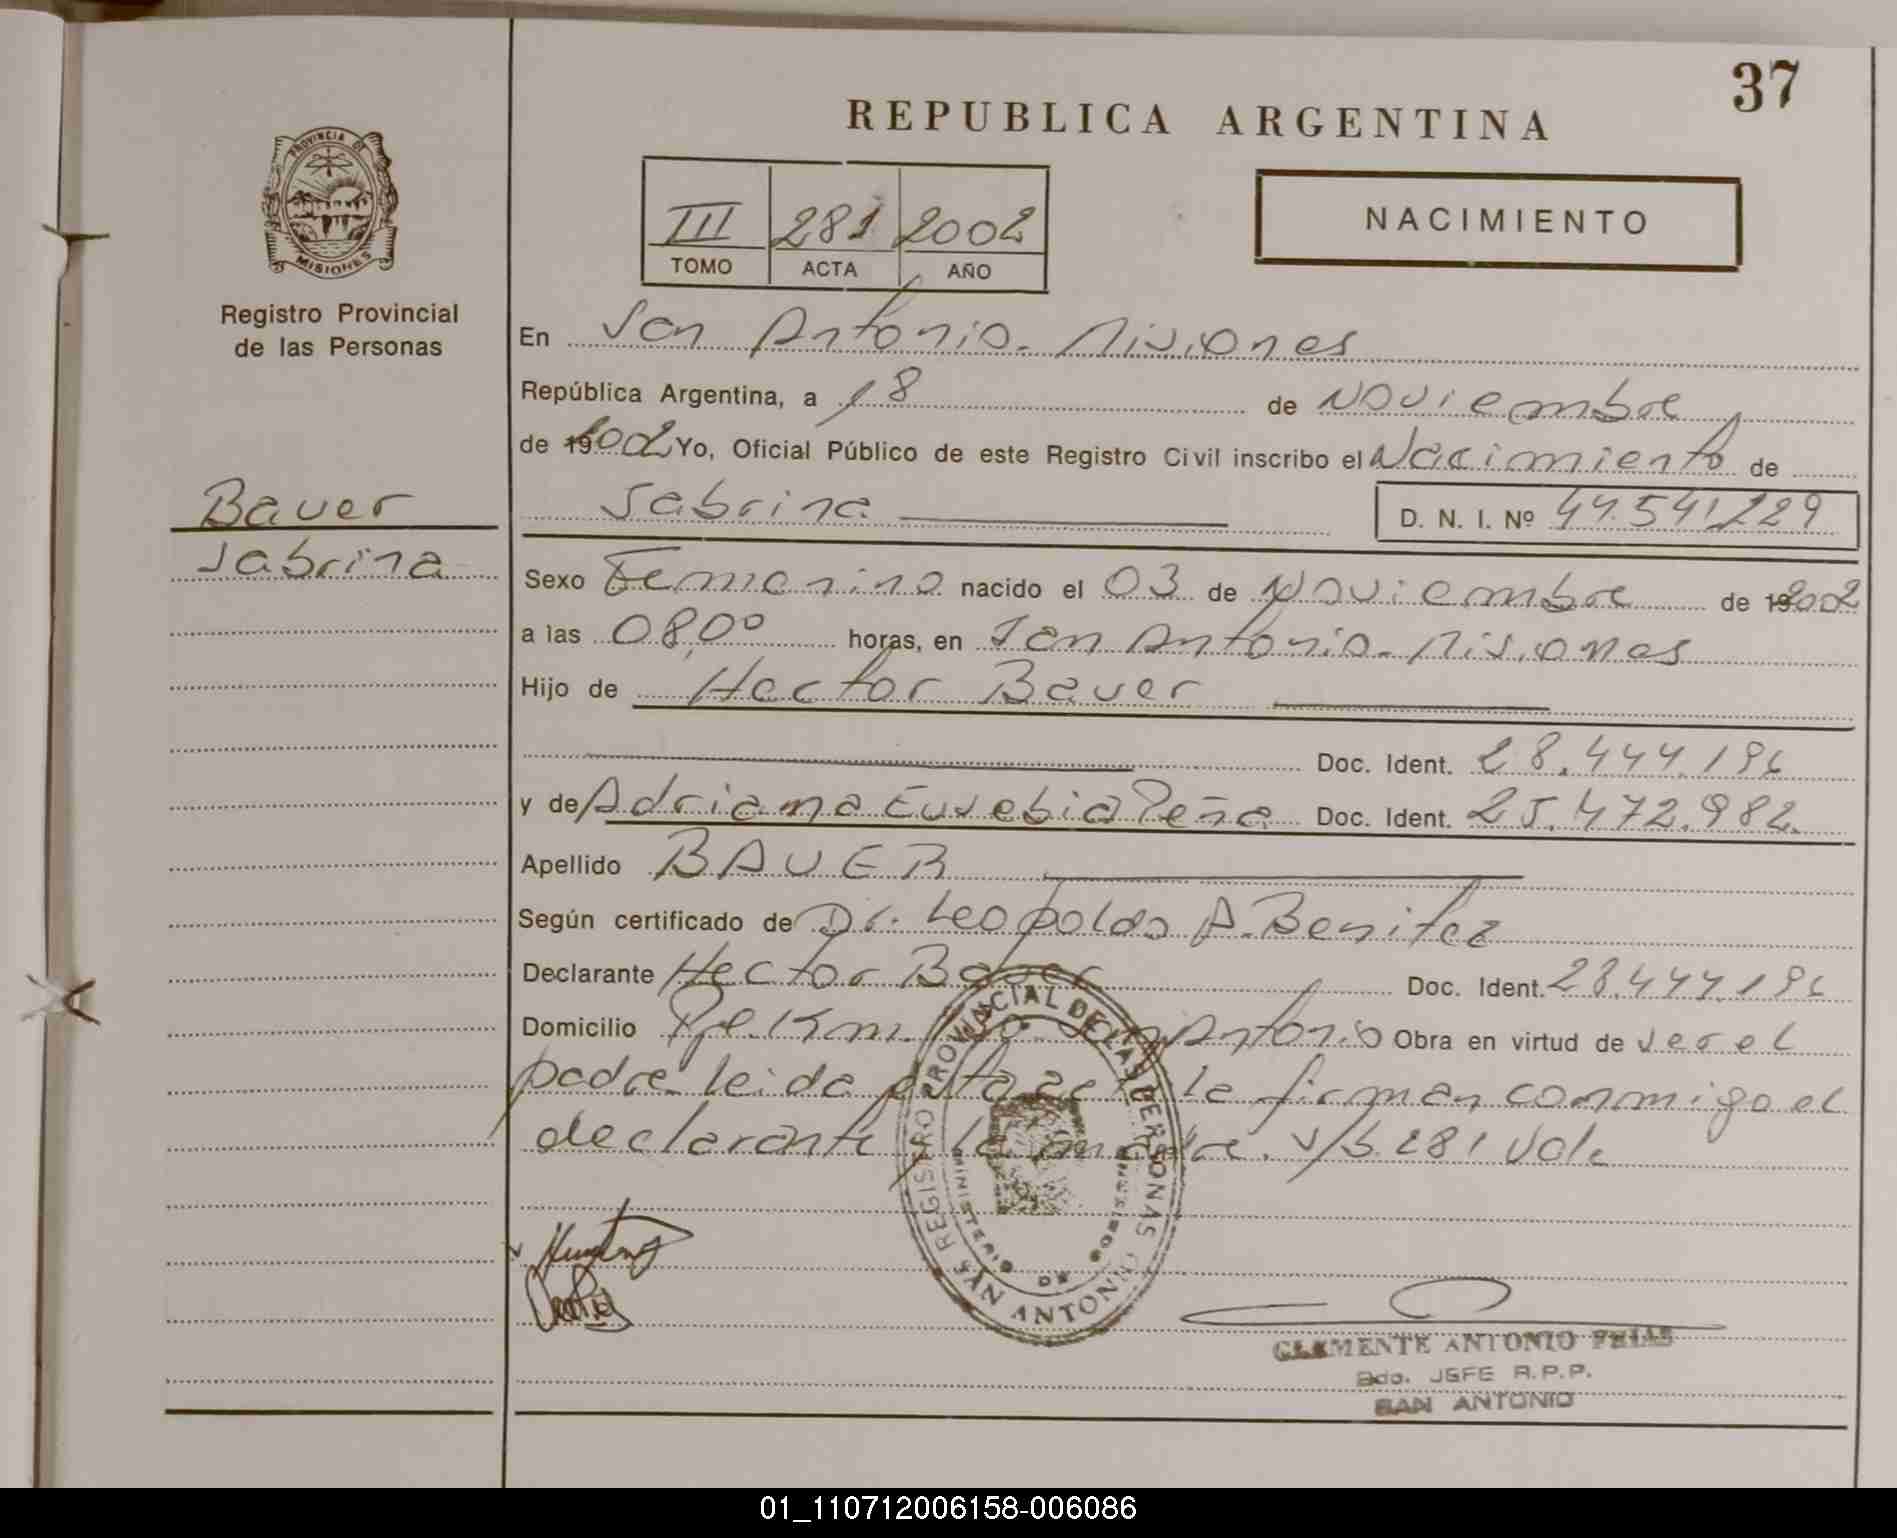 37
REPUBLICA ARGENTINA
PROVINCIA DE
MISIONES
Registro Provincial
de las Personas
III 281 2002
TOMO ACTA AÑO
NACIMIENTO
En San Antonio - Misiones
República Argentina, a 18 de Noviembre
de 192002 Yo, Oficial Público de este Registro Civil inscribo el Nacimiento de
Bauer
Sabrina
Sabrina D. N. I. Nº 44.541.229
Sexo Femenino nacido el 03 de Noviembre de 192002
a las 08,00 horas, en San Antonio - Misiones
Hijo de Hector Bauer
Doc. Ident. 28.444.196
y de Adriana Eusebia Peña Doc. Ident. 25.472.982.
Apellido BAUER
Según certificado de Dr. Leopoldo A. Benitez
Declarante Hector Bauer Doc. Ident. 28.444.196
Domicilio Pje. Km. San Antonio Obra en virtud de ser el
padre leida esta acta la firman conmigo el
declarante y la madre. s/b. 281 Vale
REGISTRO PROVINCIAL DE LAS PERSONAS
MINISTERIO DE GOBIERNO
SAN ANTONIO
CLEMENTE ANTONIO FRIAS
Bdo. JEFE R.P.P.
SAN ANTONIO
01_110712006158-006086